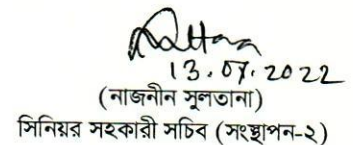 13.07.2022
(নাজনীন সুলতানা)
সিনিয়র সহকারী সচিব (সংস্থাপন-২)